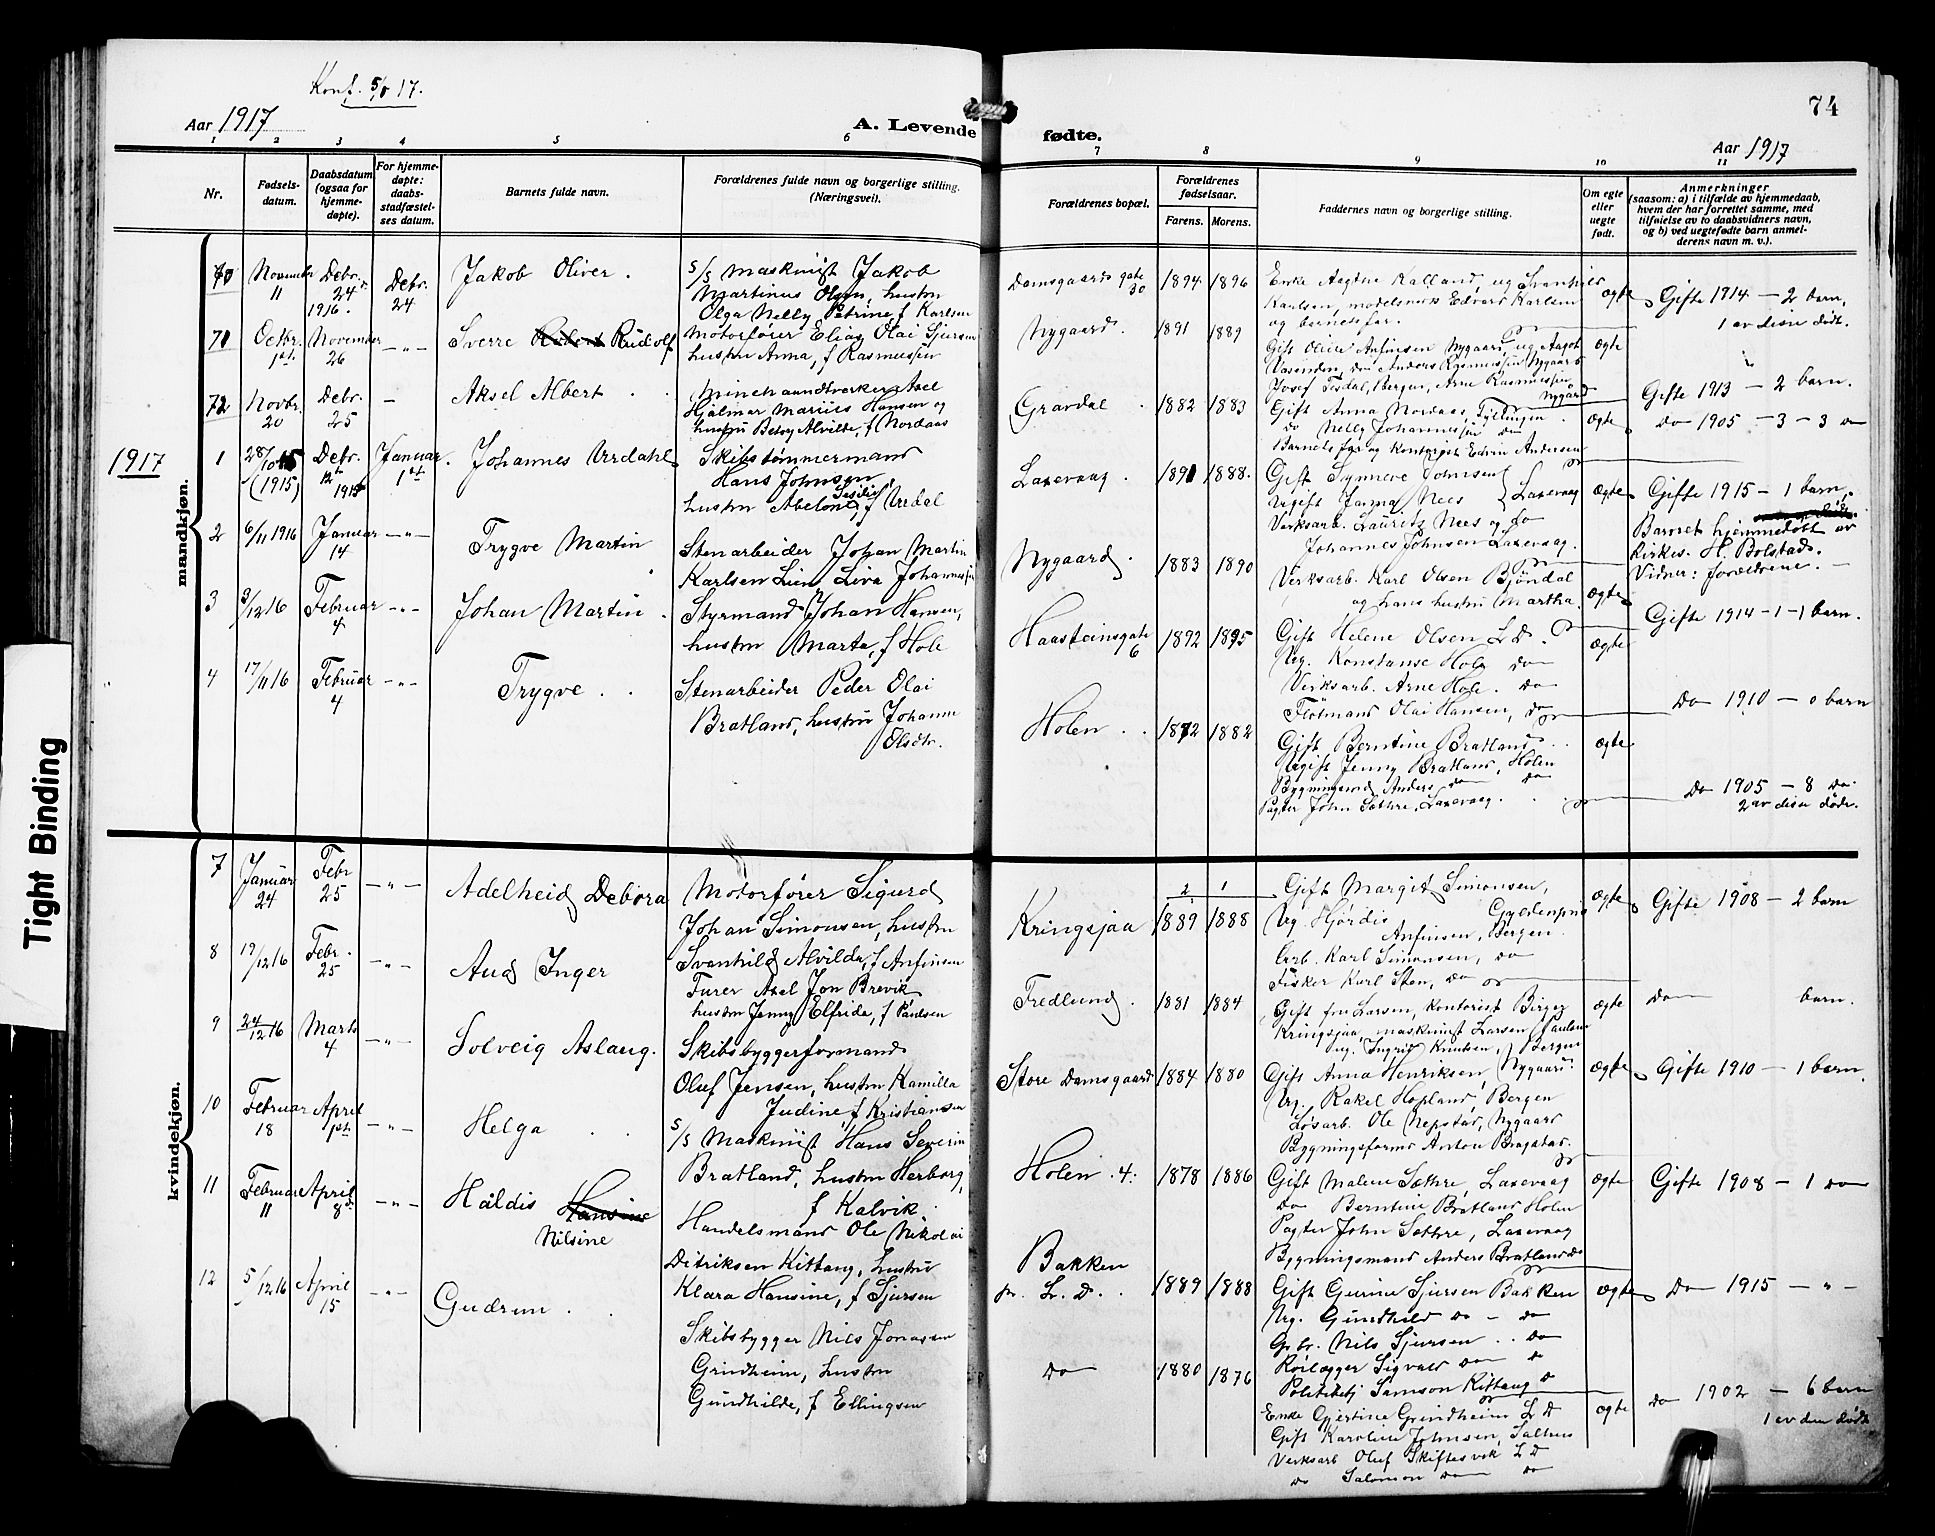 Konf. 5/8 17.
Aar 1917
A. Levende fødte.
74
Aar 1917
1 2 3 4 5 6 7 8 9 10 11
Nr.
Fødsels-
datum.
Daabsdatum
(ogsaa for
hjemme-
døpte).
For hjemme-
døpte:
daabs-
stadfæstel-
ses datum.
Barnets fulde navn.
Forældrenes fulde navn og borgerlige stilling.
(Næringsvei).
Forældrenes bopæl.
Forældrenes
fødselsaar.
Farens. Morens.
Faddernes navn og borgerlige stilling.
Om egte
eller
uegte
født.
Anmerkninger
(saasom: a) i tilfælde av hjemmedaab,
hvem der har forrettet samme, med
tilføielse av to daabsvidners navn,
og b) ved uegtefødte barn anmel-
derens navn m. v.).
mandkjøn.
70
November
11
Debr.
24
1916.
Debr.
24
Jakob Oliver.
s/s maskinist Jakob
Martinus Olsen, hustru
Olga Nelly Petrine f Karlsen
Damsgaards gate
30
1894 1896
Karlsen, Edvard Karlsen
og barnets far.
egte
Gifte 1914 – 2 barn,
1 av disse dødt.
71
Octbr.
1ste
November
26
-"-
Sverre Robert Rudolf
Motorfører Elias Olai Sjursen
hustru Anna, f Rasmussen
Nygaard.
1891 1889
Gift Olive Anfinsen Nygaard, ug Aagot
Josef Tesdal, Bergen, Arne Rasmussen
Nygaard
egte
Gifte 1913 – 2 barn.
72
Novbr.
20
Debr.
25
-
Aksel Albert
Hjalmar Marius Hansen og
hustru Betsy Alvilde, f Nordaas
Gravdal.
1882 1883
Gift Anna Nordaas, Fyllingen
do Nelly Johannessen do
Barnets far og kontorist Edvin Andersen
egte
do 1905 – 3 – 3 do
1917
1
28/10 15
(1915)
Debr.
12
1915
Januar
1ste
Johannes Urdahl
Skibstømmermand
Hans Johnsen
hustru Abelone Sesilie, f Urdal
Laxevaag.
1891 1888.
Gift Synneve Johnsen
Ugift Janna Nees } Laxevaag
Verksarb. Laurits Nees og do
Johannes Johnsen Laxevaag.
egte
Gifte 1915 – 1 barn,
Barnet hjemmedøbt av
kirkes. H. Bolstad.
Vidner: forældrene. –
2
6/11 1916
Januar
14
-"-
Trygve Martin
Stenarbeider Johan Martin
Karlsen Lien Liva Johannessen
Nygaard.
1883 1890
Verksarb. Karl Olsen Bjöndal
og hans hustru Martha.
egte
Gifte 1914 – 1 – 1 barn.
3
3/12 16
Februar
4
-"-
Johan Martin.
Styrmand Johan Hansen,
hustru Marta, f Hole
Haasteinsgate
6
1892 1895
Gift Helene Olsen L D.
Ug. Konstanse Hole do
Verksarb. Arne Hole. do
Flötmand Olai Hansen, do
egte
Do 1910 – 0 barn
4
17/11 16
Februar
4
-"-
Trygve.
Stenarbeider Peder Olai
Bratland, hustru Johanne
Olsdtr.
Holen
1872 1882
Gift Berntine Bratland
Ugift Jenny Bratland, Holen
Bygningsmd Anders do do
Pagter John Sæthre, Laxevaag.
egte
Do 1905 – 8 Do
2 av disse døde.
kvindekjøn.
7
Januar
24
Febr
25
-"-
Adelheid Debora
Motorfører Sigurd
Johan Simonsen, hustru
Svanhild Alvilde, f Anfinsen
Kringsjaa
2 1
1889 1888
Gift Margit Simonsen,
Ug. Hjördis Gyldenpris
Anfinsen, Bergen.
Arb. Karl Simonsen, do
Fisker Karl Sten, do
egte
Gifte 1908 – 2 barn
8
19/12 16
Febr.
25
-"-
Aud Inger
Furer Axel Jon Brevik
hustru Jenny Elfride, f Paulsen
Fredlund.
1881 1884
Gift fru Larsen, kontorist Birger
Kringsjaa, maskinist Larsen Paulsen
ug. Ingrid Knudsen, Bergen
egte
Do barn.
9
24/12 16
Marts
4
-"-
Solveig Aslaug.
Skibsbyggerformand
Oluf Jensen, hustru Kamilla
Judine, f Kristiansen
Store Damsgaard
1884 1880
Gift Anna Henriksen, Nygaard.
Ug. Rakel Hopland, Bergen
Løsarb. Ole Nepstad, Nygaard
egte
Gifte 1910 – 1 barn.
10
Februar
18
April
1ste
-"-
Helga
s/s Maskinist Hans Severin
Bratland, hustru Herborg,
f Kalvik
Holen 4.
1878 1886
Gift Malene Sæthre, Laxevaag
Do Berntine Bratland Holen
Pagter John Sæthre, Laxevaag
Bygningsmand Anders Bratland do
egte
Gifte 1908 – 1 do
11
Februar
11
April
8de
-"-
Håldis Hansine
Nilsine
Handelsmand Ole Nikolai
Ditriksen Kittang, hustru
Klara Hansine, f Sjursen
Bakken
pr. L. D.
1889 1888
Gift Gurine Sjursen Bakken
Ug. Gundhild do – do
Gbr. Nils Sjursen. do
Rørlægger Sigvald do do
Politibetj Samson Kittang do
egte
Do 1915 – " –
12
5/12 16
April
15
-"-
Gudrun
Skibsbygger Nils Jonassen
Grindheim, hustru
Gundhilde, f Ellingsen
do
1880 1876
Enke Gjertine Grindheim L D
Gift Karoline Johnsen, Salhus
Verksarb Oluf Skiftesvik L D
Do Salomon do do
egte
Do 1902 – 6 barn
1 av dem dødt
Tight Binding